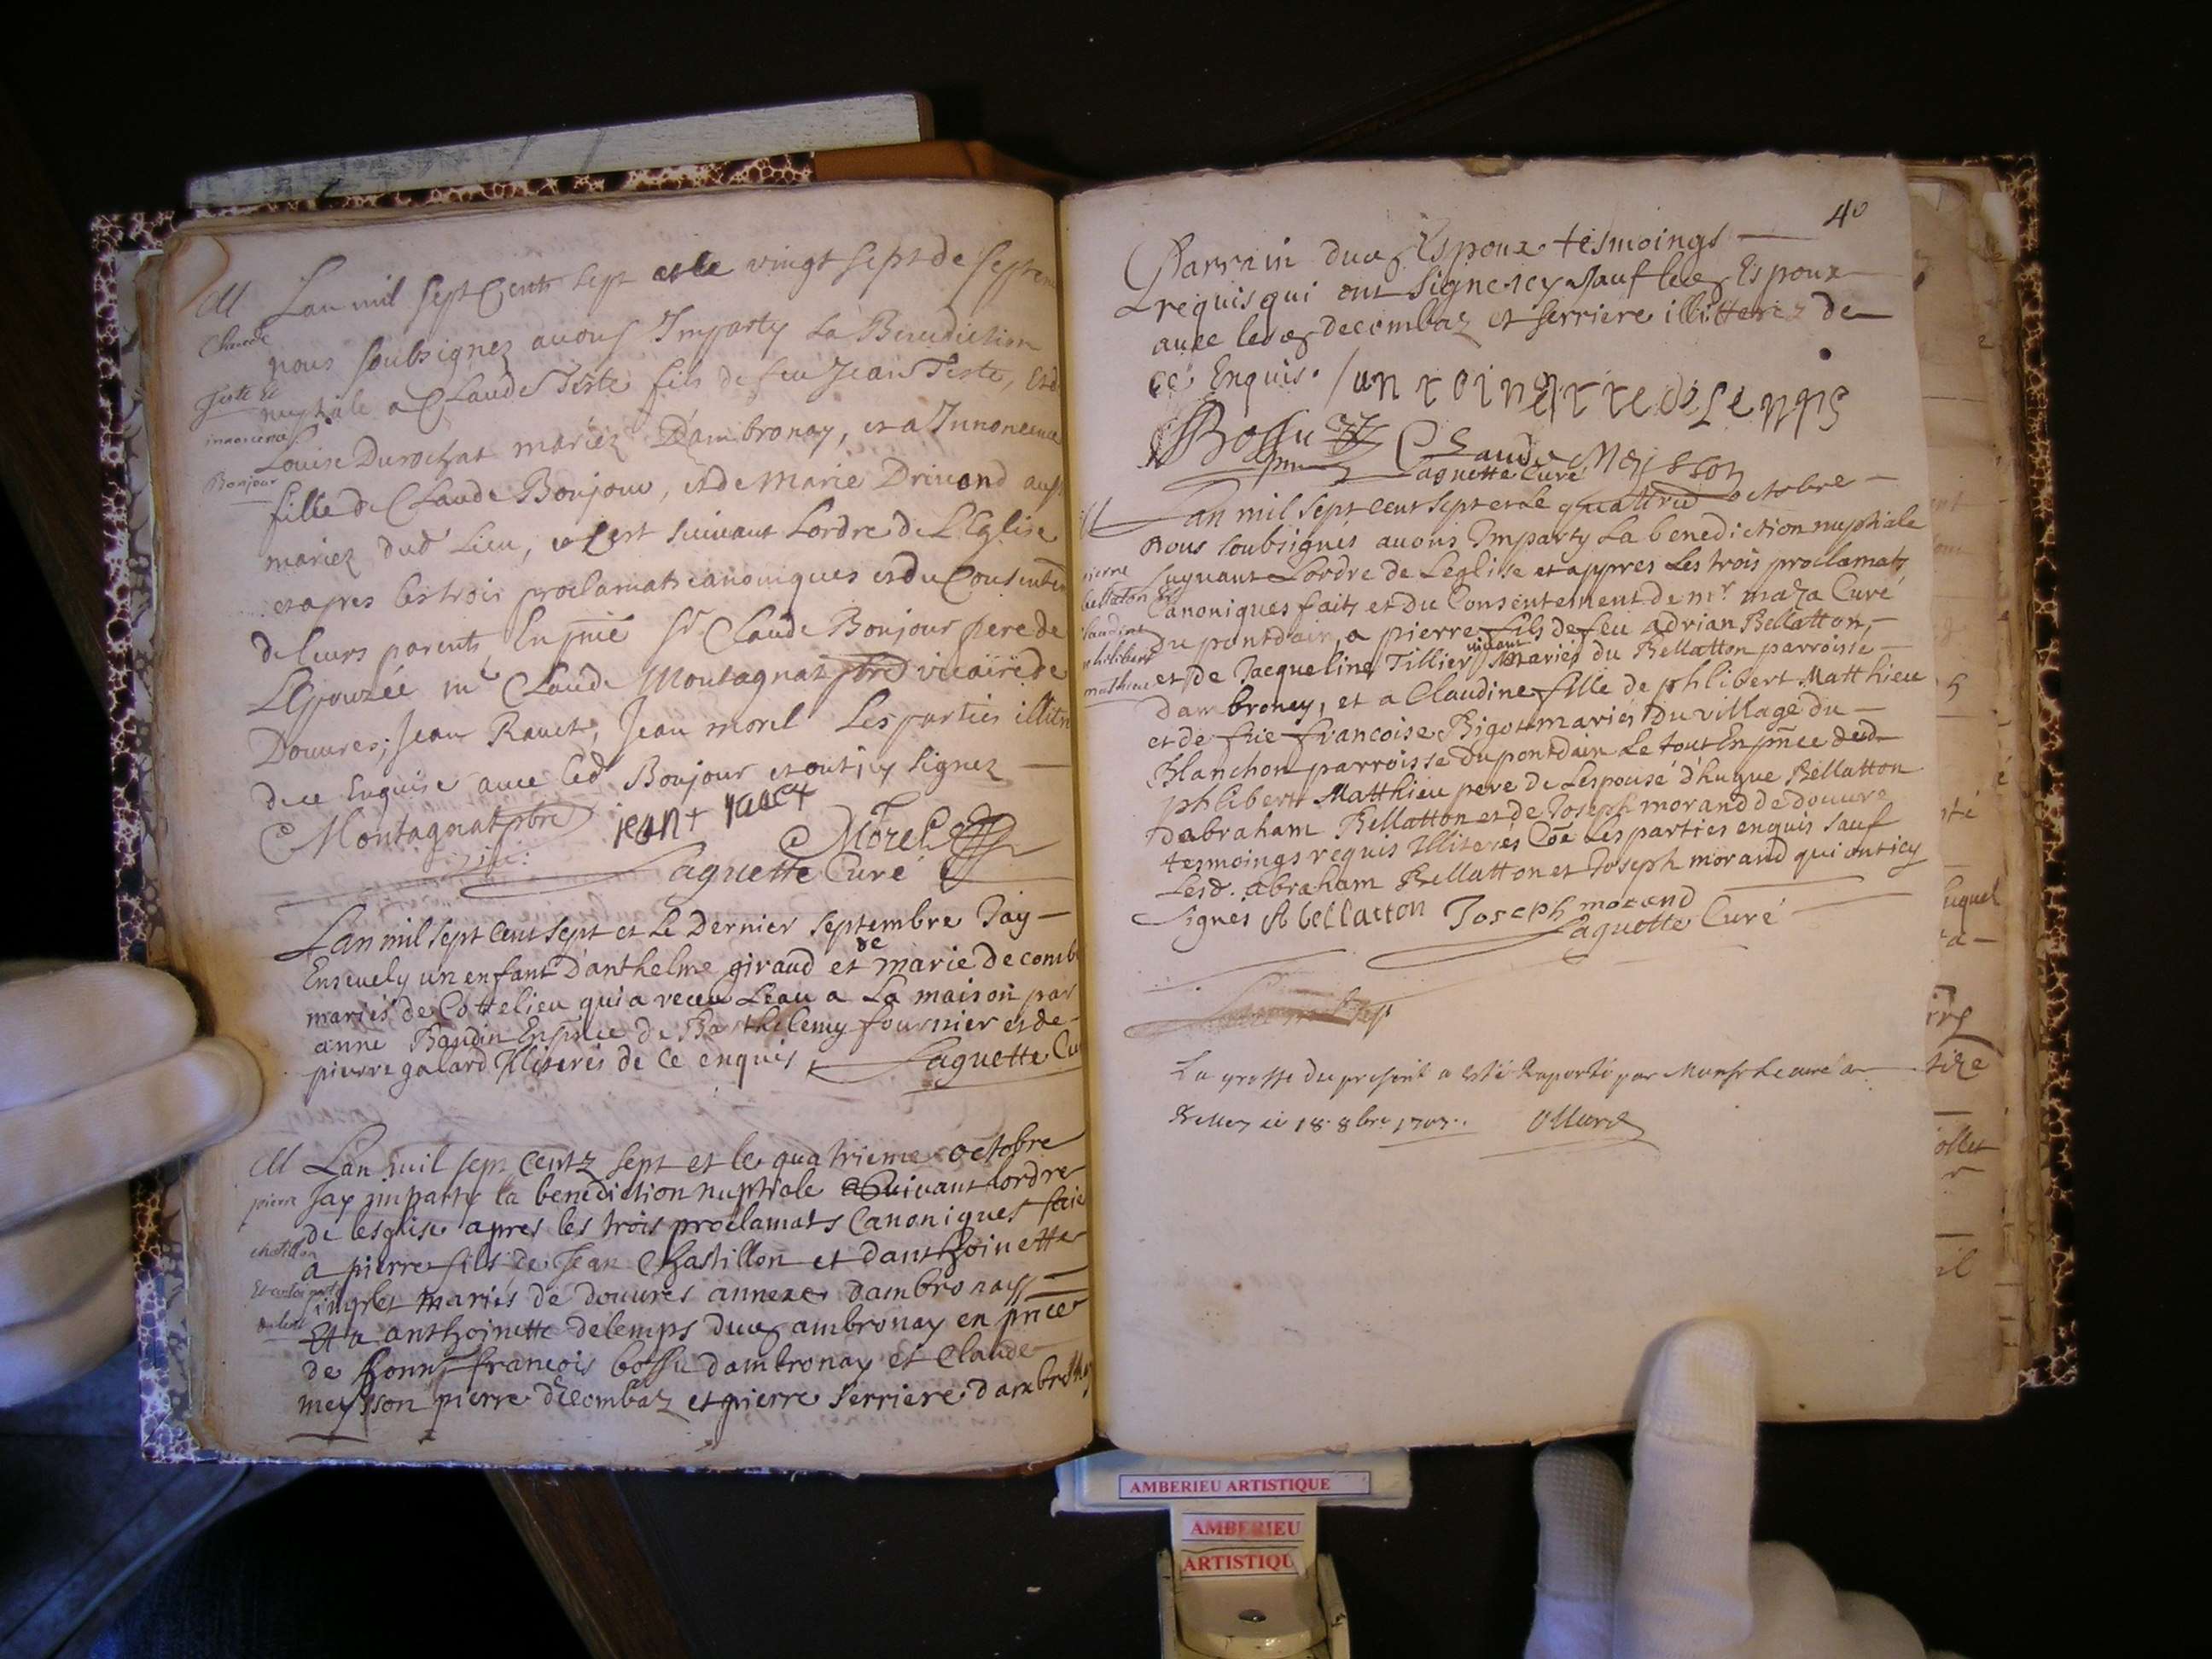 M Lan mil sept Cents sept et le vingt sept de septem
Claude
nous soubsignez avons Imparty La Benediction
Teste Et
nuptiale a Claude Teste fils de feu Jean Teste, Et de
innocence
Louise Durochat mariez D'ambronay, et a Innocence
Bonjour
fille de Claude Bonjour, et de Marie Drivond aussi
mariez dud Lieu, et cest suivant Lordre de L'Eglise
et apres les trois proclamats canoniques et du Consentem
de leurs parents En pñce Sr Claude Bonjour pere de
L'Epouzée mr Claude Montagnat pbre vicaire de
Douvres; Jean Ravet, Jean morel Les parties illitr
de ce Enquise avec led Bonjour et ont icy signez
C Montagnat pbre jean + ravet
C Morel
Laguette Curé
Lan mil sept cent sept et Le Dernier septembre Jay
Ensevely un enfant danthelme giraud et de marie decomb
mariés de Cottelieu qui a receu Leau a La maison par
anne Baudin En pñce de Barthelemy fournier et de
pierre galard Illiterés de ce enquis Laguette Cu
M Lan mil sept Centz sept et le quatrieme octobre
pierre Jay imparty la benediction nuptiale suivant lordre
de lesglise apres les trois proclamats Canoniques faie
chatillon
a pierre fils de Jean Chastillon et danthoinette
Et anthoinette
singlet mariés de douvres annexe dambronay
delent
Et a anthoinette delemps dud ambronay en pñce
de honn francois bossu dambronay et Claude
meysson pierre decombaz et pierre serriere dambrony
40
Parrain dud Espoux tesmoings
requis qui ont signe icy sauf led Espoux
avec lesd decombaz et serriere illitterez de
ce Enquis. /
Bossu Claude Meisson
Laguette Curé
M Lan mil sept cent sept et Le quattrie octobre
Nous soubsignés avons Imparty La benediction nuptiale
pierre suyvant Lordre de Leglise et appres Les trois proclamatz
bellaton Et Canoniques faits et du Consentement de mr. maza Curé
claudine du pontdain, a pierre fils de feu adrian Bellatton,
philibert
et de Jacqueline Tillier vivant Mariés du Bellatton parroisse
mathieu
dambroney, et a Claudine fille de phlibert Matthieu
et de fue francoise Bigot mariés du village du
Blanchon parroisse du pontdain Le tout En pñce dud
phlibert Matthieu pere de Lespousé d'hugue Bellatton
dabraham Bellatton et de Joseph morand de douvre
tesmoings requis Illiterés Coē Les parties enquis sauf
Lesd. abraham Bellatton et Joseph morand qui ont icy
Signés A bellatton Joseph morand
Laguette Curé
La grosse du present a esté Raporté par Monsr Le curé a
Belley ce 18. 8bre 1707.
AMBERIEU ARTISTIQUE
AMBERIEU
ARTISTIQU